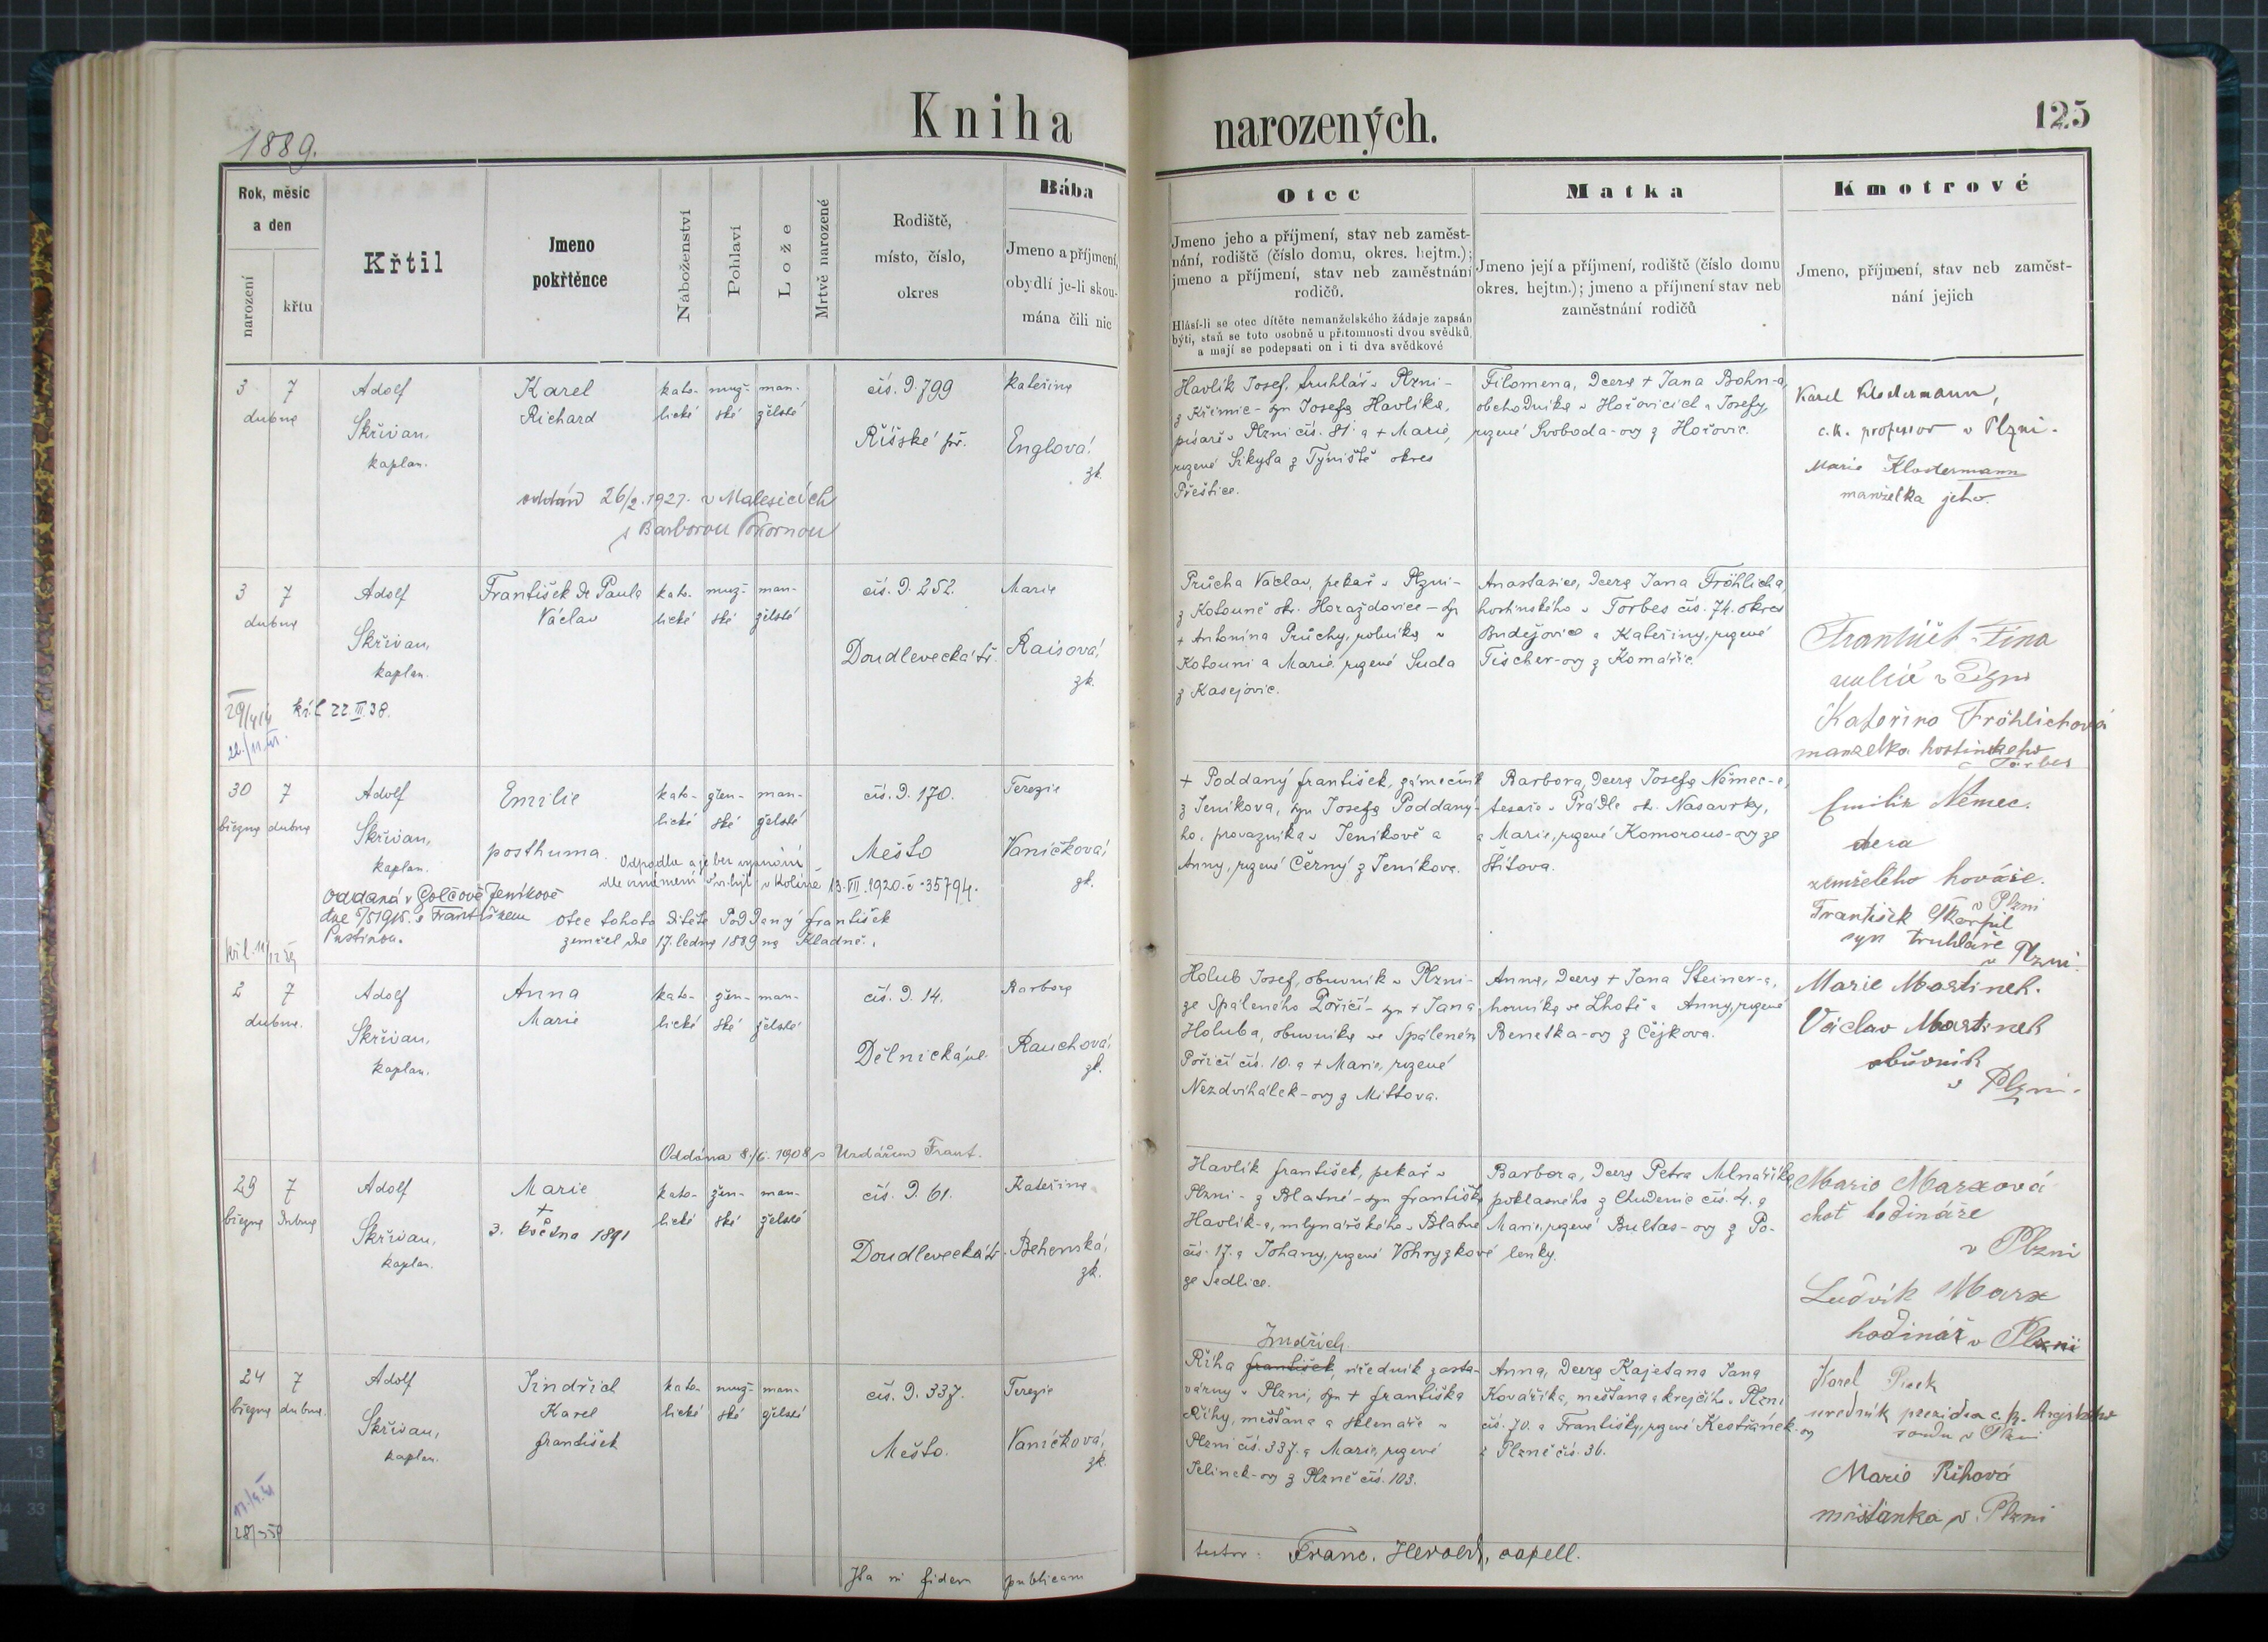 Kniha narozených.
125
1889.
Rok, měsíc
a den
narození
křtu
Křtil
Jmeno
pokřtěnce
Náboženství
Pohlaví
Lože
Mrtvě narozené
Rodiště,
místo, číslo,
okres
Bába
Jmeno a příjmení,
obydlí je-li skou-
mána čili nic
Otec
Jmeno jeho a příjmení, stav neb zaměst-
nání, rodiště (číslo domu, okres. hejtm.);
jmeno a příjmení, stav neb zaměstnání
rodičů.
Hlásí-li se otec dítěte nemanželského žádaje zapsán
býti, staň se toto osobně u přítomnosti dvou svědků,
a mají se podepsati on i ti dva svědkové
Matka
Jmeno její a příjmení, rodiště (číslo domu
okres. hejtm.); jmeno a příjmení stav neb
zaměstnání rodičů
Kmotrové
Jmeno, příjmení, stav neb zaměst-
nání jejich
3 7
dubna
Adolf
Skřivan,
kaplan.
Karel
Richard
kato- muž- man-
lické ské želské
čís. d. 799
Říšské př.
Kateřina
Englová
zk.
oddán 26/2. 1927. v Malesicích
s Barborou Pokornou
Havlík Josef, truhlář v Plzni -
z Křimic - syn Josefa Havlíka,
písaře v Plzni čís. 81. a + Marie,
rozené Sikyta z Týniště okres
Přeštice.
Filomena, dcera + Jana Bohn-a,
obchodníka v Hořovicích a Josefy,
rozené Svoboda-ovy z Hořovic.
Karel Klostermann,
c.k. professor v Plzni.
Marie Klostermann
manželka jeho.
3 7
dubna
Adolf
Skřivan,
kaplan.
František de Paula
Václav
kato- muž- man-
lické ské želské
čís. d. 252.
Doudlevecká tř.
Marie
Raisová,
zk.
kř. l. 22 III. 38.
Průcha Václav, pekař v Plzni -
z Kotouně okr. Horažďovice - syn
+ Antonína Průchy, rolníka v
Kotouni a Marie, rozené Suda
z Kasejovic.
Anastasie, dcera Jana Fröhlicha,
hostinského v Forbes čís. 74. okres
Budějovice a Kateřiny, rozené
Fischer-ovy z Komařic.
František Fína
v Plzni
Kateřina Fröhlichová
manželka hostinského
Forbes
30 7
března dubna
Adolf
Skřivan,
kaplan.
Emilie
posthuma.
kato- žen- man-
lické ské želské
čís. d. 170.
Město
Terezie
Vaníčková,
zk.
Odpadla a je bez vyznání
dle oznámení v Kolíně 13. VII. 1920. č. 35794.
Oddaná v Golčově Jeníkově
dne 7/5 1915. s Františkem
otec tohoto dítěte Poddaný František
zemřel dne 17. ledna 1889 na Kladně.
+ Poddaný František, zámečník
z Jeníkova, syn Josefa Poddaný-
ho, provazníka v Jeníkově a
Anny, rozené Černý z Jeníkova.
Barbora, dcera Josefa Němec-e,
tesaře v Prádle ok. Nasavrky,
a Marie, rozené Komorous-ovy ze
Štítova.
Emilie Němec.
dcera
zemřelého kováře.
v Plzni
František Škarpil
syn truhláře
v Plzni.
2 7
dubna.
Adolf
Skřivan,
kaplan.
Anna
Marie
kato- žen- man-
lické ské želské
čís. d. 14.
Dělnická ul.
Barbora
Rauchová,
zk.
Oddána 8./6. 1908 s Uzdářem Frant.
Holub Josef, obuvník v Plzni -
ze Spáleného Poříčí - syn + Jana
Holuba, obuvníka ve Spáleném
Poříčí čís. 10. a + Marie, rozené
Nezdvihálek-ovy z Mittova.
Anna, dcera + Jana Steiner-a,
horníka ve Lhotě a Anny, rozené
Benetka-ovy z Čejkova.
Marie Martinek.
Václav Martinek
obuvník
v Plzni.
29 7
března dubna
Adolf
Skřivan,
kaplan.
Marie
+
3. května 1891
kato- žen- man-
lické ské želské
čís. d. 61.
Doudlevecká tř.
Kateřina
Behenská,
zk.
Havlík František, pekař v
Plzni - z Blatné - syn Františka
Havlík-a, mlynářského v Blatné
čís. 17. a Johany, rozené Vohryzkové
ze Sedlice.
Barbora, dcera Petra Mlnaříka,
poklasného z Chudenic čís. 4. a
Marie, rozené Bultas-ovy z Po-
lenky.
Marie Marxová
choť hodináře
v Plzni
Ludvík Marx
hodinář v Plzni
24 7
března dubna.
Adolf
Skřivan,
kaplan.
Jindřich
Karel
František
kato- muž- man-
lické ské želské
čís. d. 337.
Město.
Terezie
Vaníčková,
zk.
Jindřich
Říha František, úředník zasta-
várny v Plzni, syn + Františka
Říhy, měšťana a sklenáře v
Plzni čís. 337. a Marie, rozené
Jelínek-ovy z Plzně čís. 103.
Anna, dcera Kajetana Jana
Kovaříka, měšťana a krejčího v Plzni
čís. 70. a Františky, rozené Kestřánek-ovy
z Plzně čís. 36.
Karel
úředník c. k. krajského
soudu v Plzni
Marie Říhová
měšťanka v Plzni
Ita in fidem publicam
testor: Franc. Herold, capell.